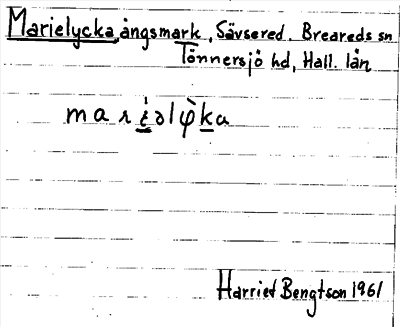 Marielycka, ängsmark, Sävsered. Breareds sn
Tönnersjö hd, Hall. län
Harriet Bengtson 1961